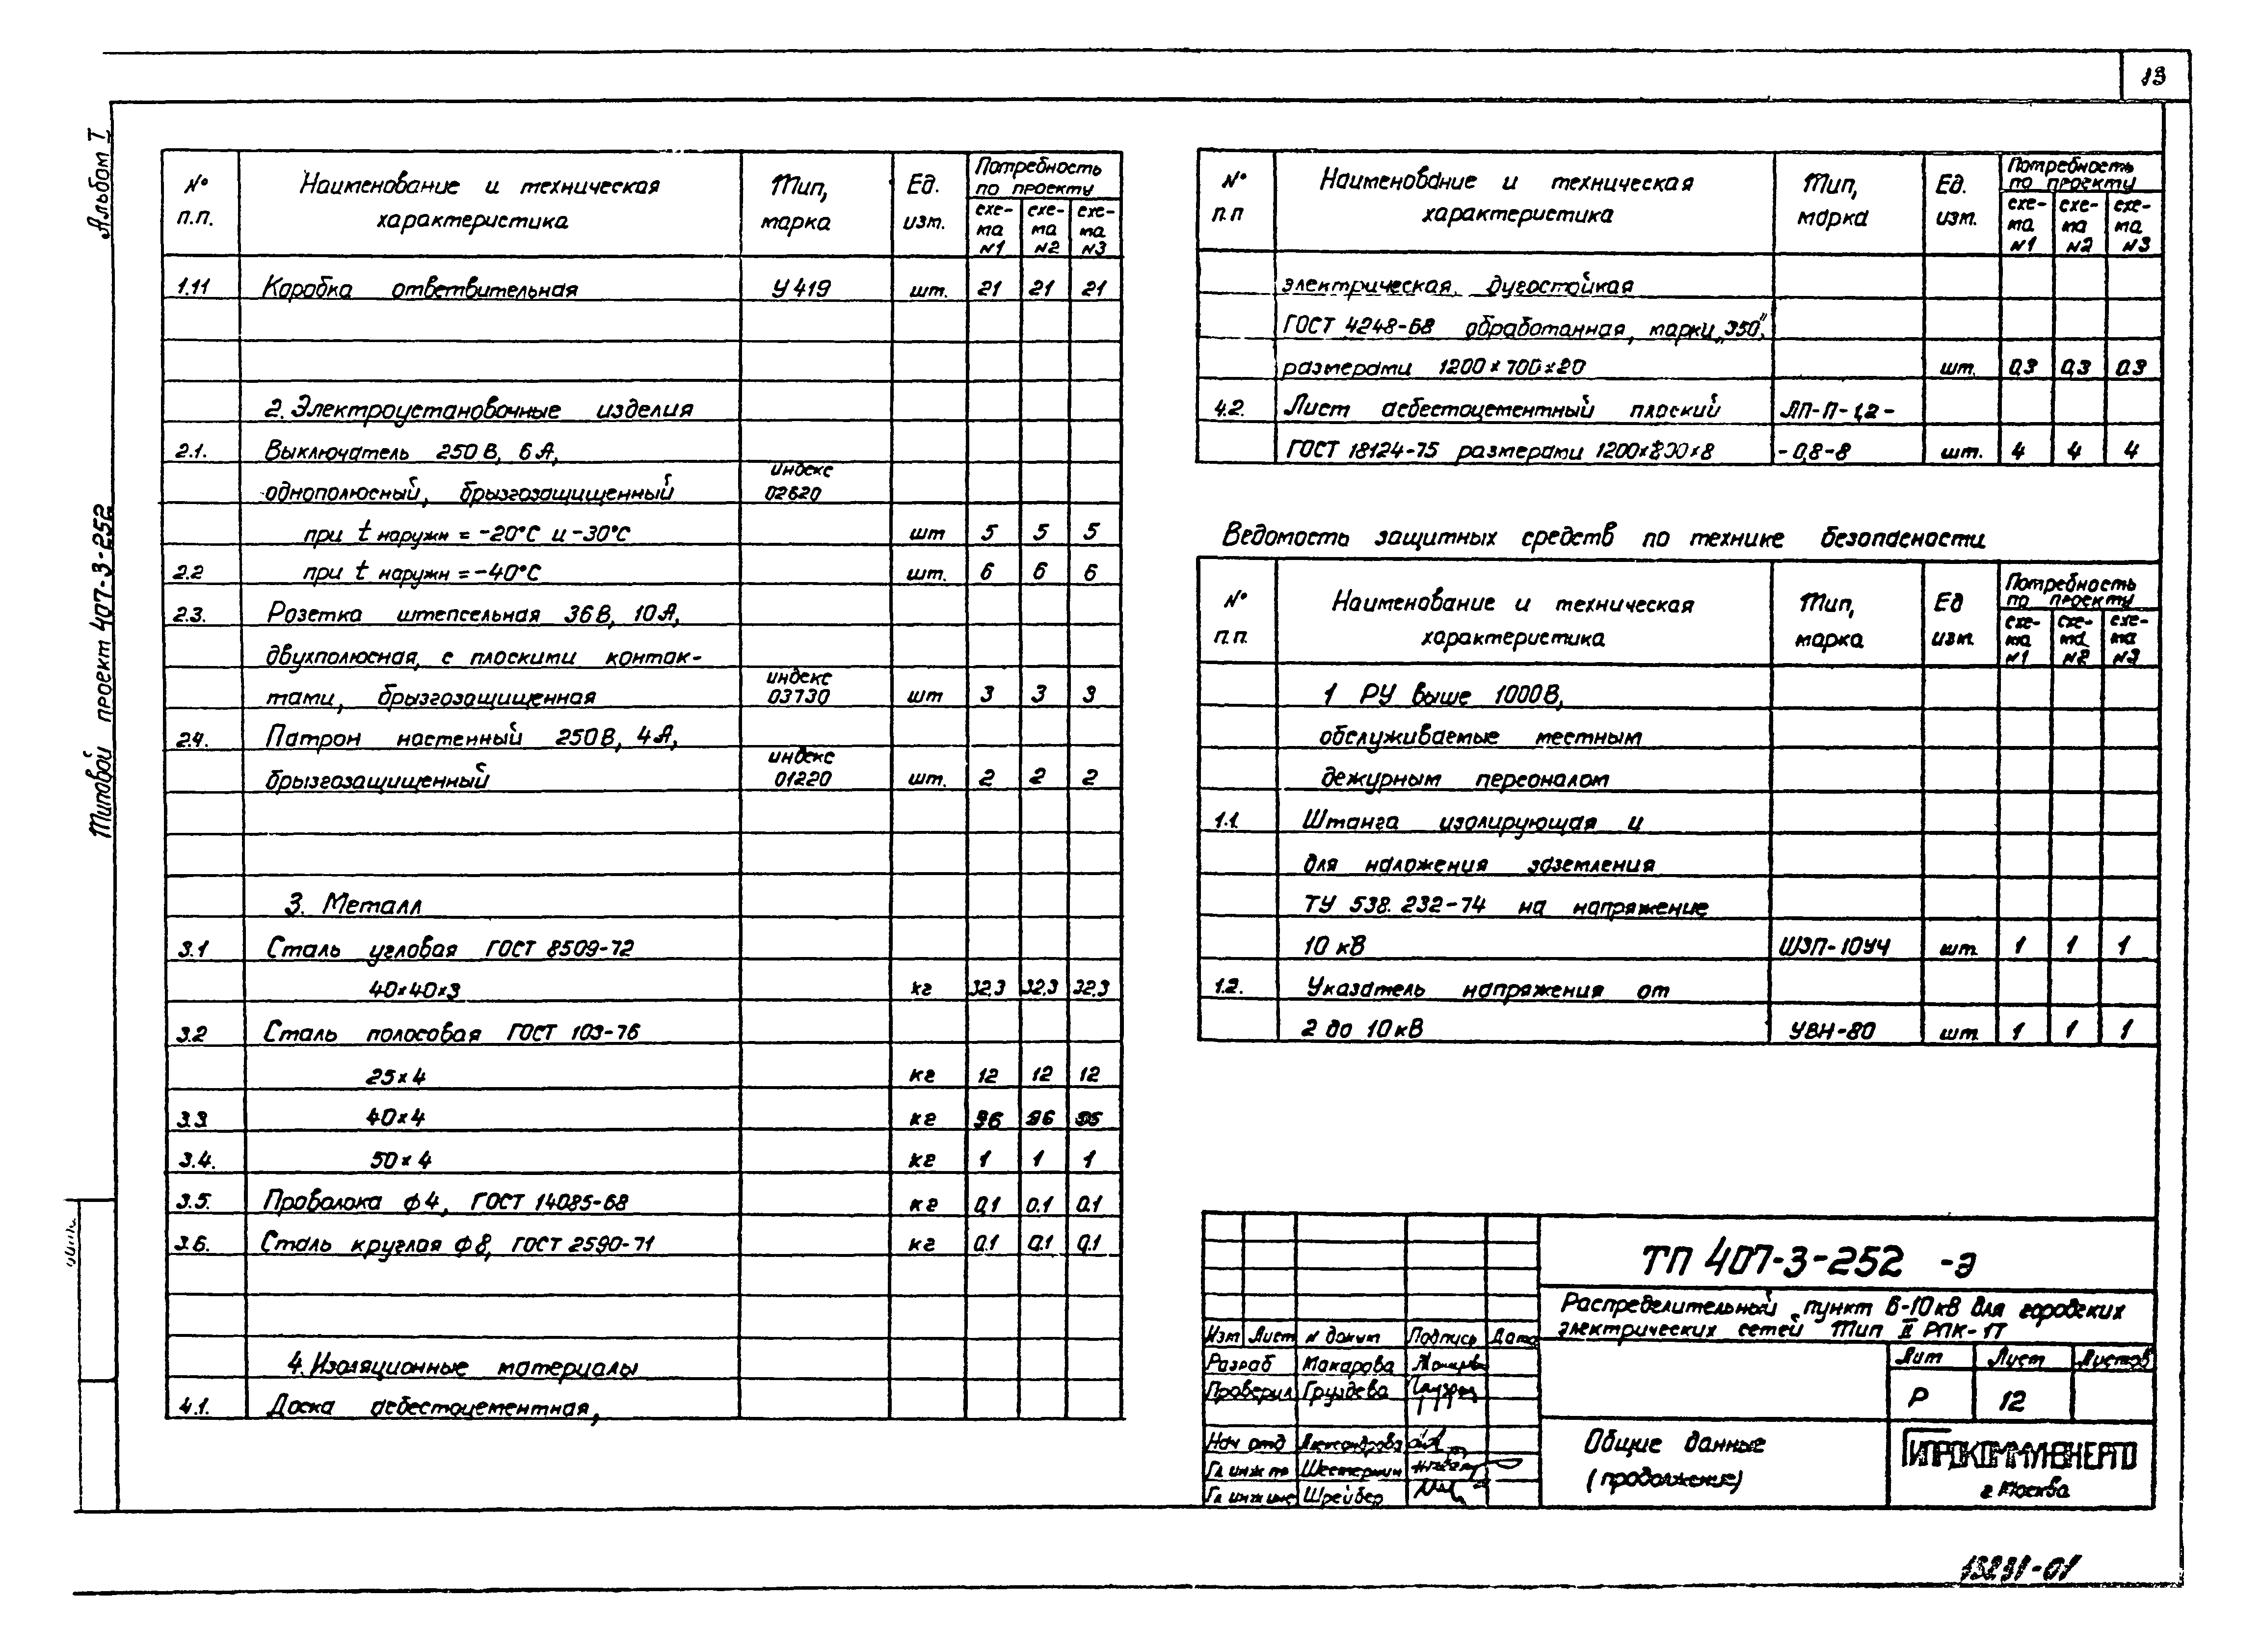 13
Альбом I
Типовой проект 407-3-252
№ п.п. Наименование и техническая характеристика Тип, марка Ед. изм. Потребность по проекту схе-ма №1 схе-ма №2 схе-ма №3
1.11 Коробка ответвительная У 419 шт. 21 21 21
2. Электроустановочные изделия
2.1. Выключатель 250 В, 6 А,
однополюсный, брызгозащищенный индекс 02620
при t наружн = -20°С и -30°С шт 5 5 5
2.2 при t наружн = -40°С шт. 6 6 6
2.3. Розетка штепсельная 36 В, 10 А,
двухполюсная, с плоскими контак-
тами, брызгозащищенная индекс 03730 шт 3 3 3
2.4. Патрон настенный 250 В, 4 А,
брызгозащищенный индекс 01220 шт. 2 2 2
3. Металл
3.1 Сталь угловая ГОСТ 8509-72
40×40×3 кг 32.3 32.3 32.3
3.2 Сталь полосовая ГОСТ 103-76
25×4 кг 12 12 12
3.3 40×4 кг 96 96
3.4. 50×4 кг 1 1 1
3.5. Проволока ф 4, ГОСТ 14085-68 кг 0,1 0.1 0.1
3.6. Сталь круглая ф 8, ГОСТ 2590-71 кг 0.1 0.1 0.1
4. Изоляционные материалы
4.1. Доска асбестоцементная,
№ п.п Наименование и техническая характеристика Тип, марка Ед. изм. Потребность по проекту схе-ма №1 схе-ма №2 схе-ма №3
электрическая, дугостойкая
ГОСТ 4248-68 обработанная, марки „350",
размерами 1200×700×20 шт. 0,3 0,3 0.3
4.2. Лист асбестоцементный плоский ЛП-П-1,2-
ГОСТ 18124-75 размерами 1200×800×8 -0,8-8 шт. 4 4 4
Ведомость защитных средств по технике безопасности
№ п.п. Наименование и техническая характеристика Тип, марка Ед изм. Потребность по проекту схе-ма №1 схе-ма №2 схе-ма №3
1 РУ выше 1000 В,
обслуживаемые местным
дежурным персоналом
1.1. Штанга изолирующая и
для наложения заземления
ТУ 538.232-74 на напряжение
10 кВ ШЗП-10У4 шт. 1 1 1
1.2. Указатель напряжения от
2 до 10 кВ УВН-80 шт. 1 1 1
ТП 407-3-252 -Э
Распределительный пункт 6-10 кВ для городских
электрических сетей Тип II РПК-1Т
Изм Лист N докум Подпись Дата
Разраб Макарова
Проверил Груздева
Нач отд Александрова
Гл инж пр Шестернин
Гл инж инс Шрейбер
Лит Лист Листов
Р 12
Общие данные
(продолжение)
ГИПРОКОММУНЭНЕРГО
г Москва